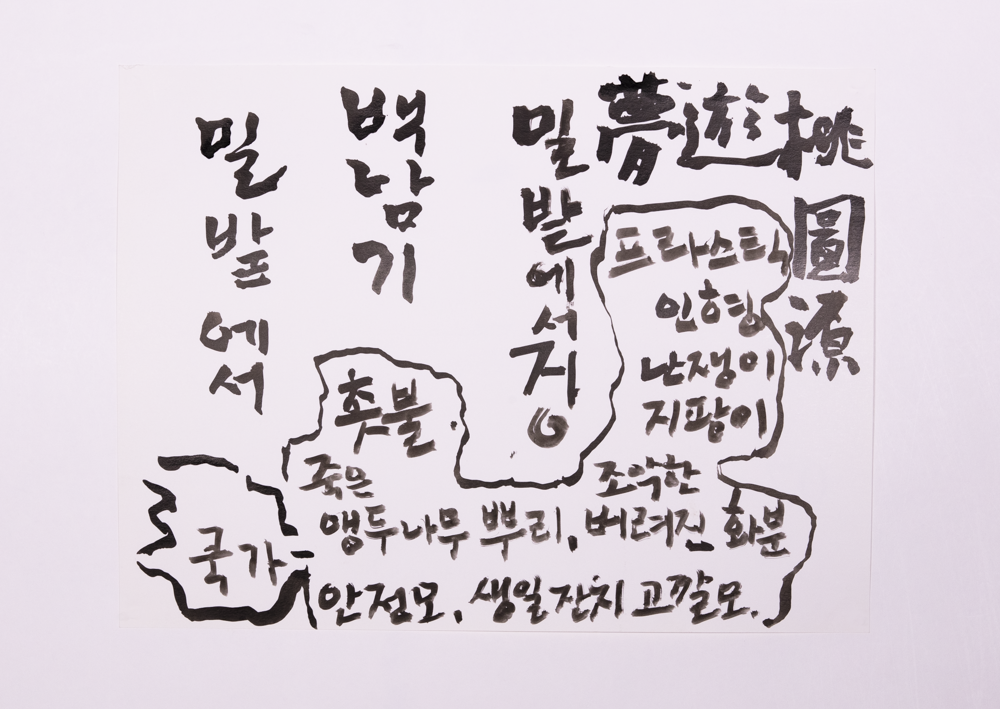 夢遊桃
圖
源
밀밭에서징
백남기
밀밭에서
프라스틱
인형
난쟁이
지팡이
촛불
죽은 조악한
앵두나무 뿌리, 버려진 화분
안정모, 생일잔치 고깔모,
국가